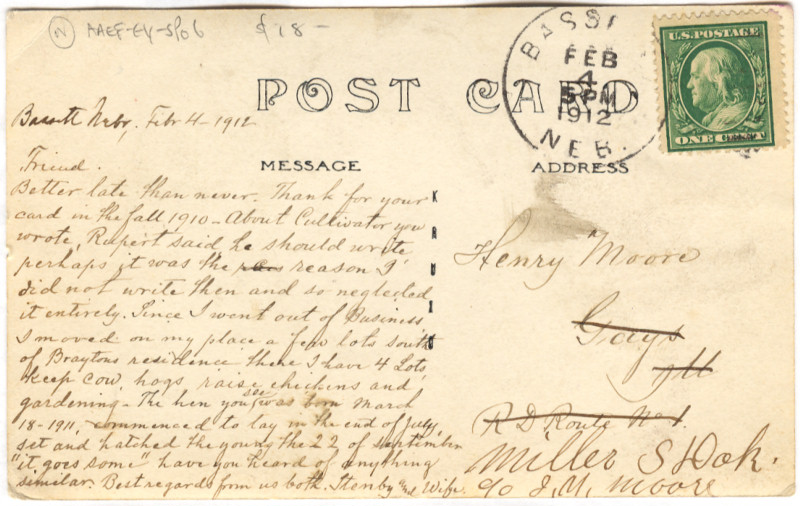 N AAEF-EV-SP06 $18-
BASSETT
FEB
4
5 PM
1912
NEB.
U.S. POSTAGE
ONE CENT
POST CARD
Bassett Nebr, Feb 4-1912
MESSAGE
ADDRESS
Friend.
Better late than never. Thank for your
card in the fall 1910 - About Cultivator you
wrote, Rupert said he should write
perhaps it was the reason I
did not write then and so neglected
it entirely. Since I went out of Business,
I moved on my place a few lots south
of Braytons residence there I have 4 Lots,
keep cow, hogs raise chickens and
gardening - The hen you see was born March
18-1911, commenced to lay in the end of July,
set and hatched the young the 22 of September
"it goes some" have you heard of anything
similar. Best regards from us both. and Wife.
KRUXO
Henry Moore
Gays
Ill
R D Route No 1.
Miller S Dak.
c/o J. M. Moore